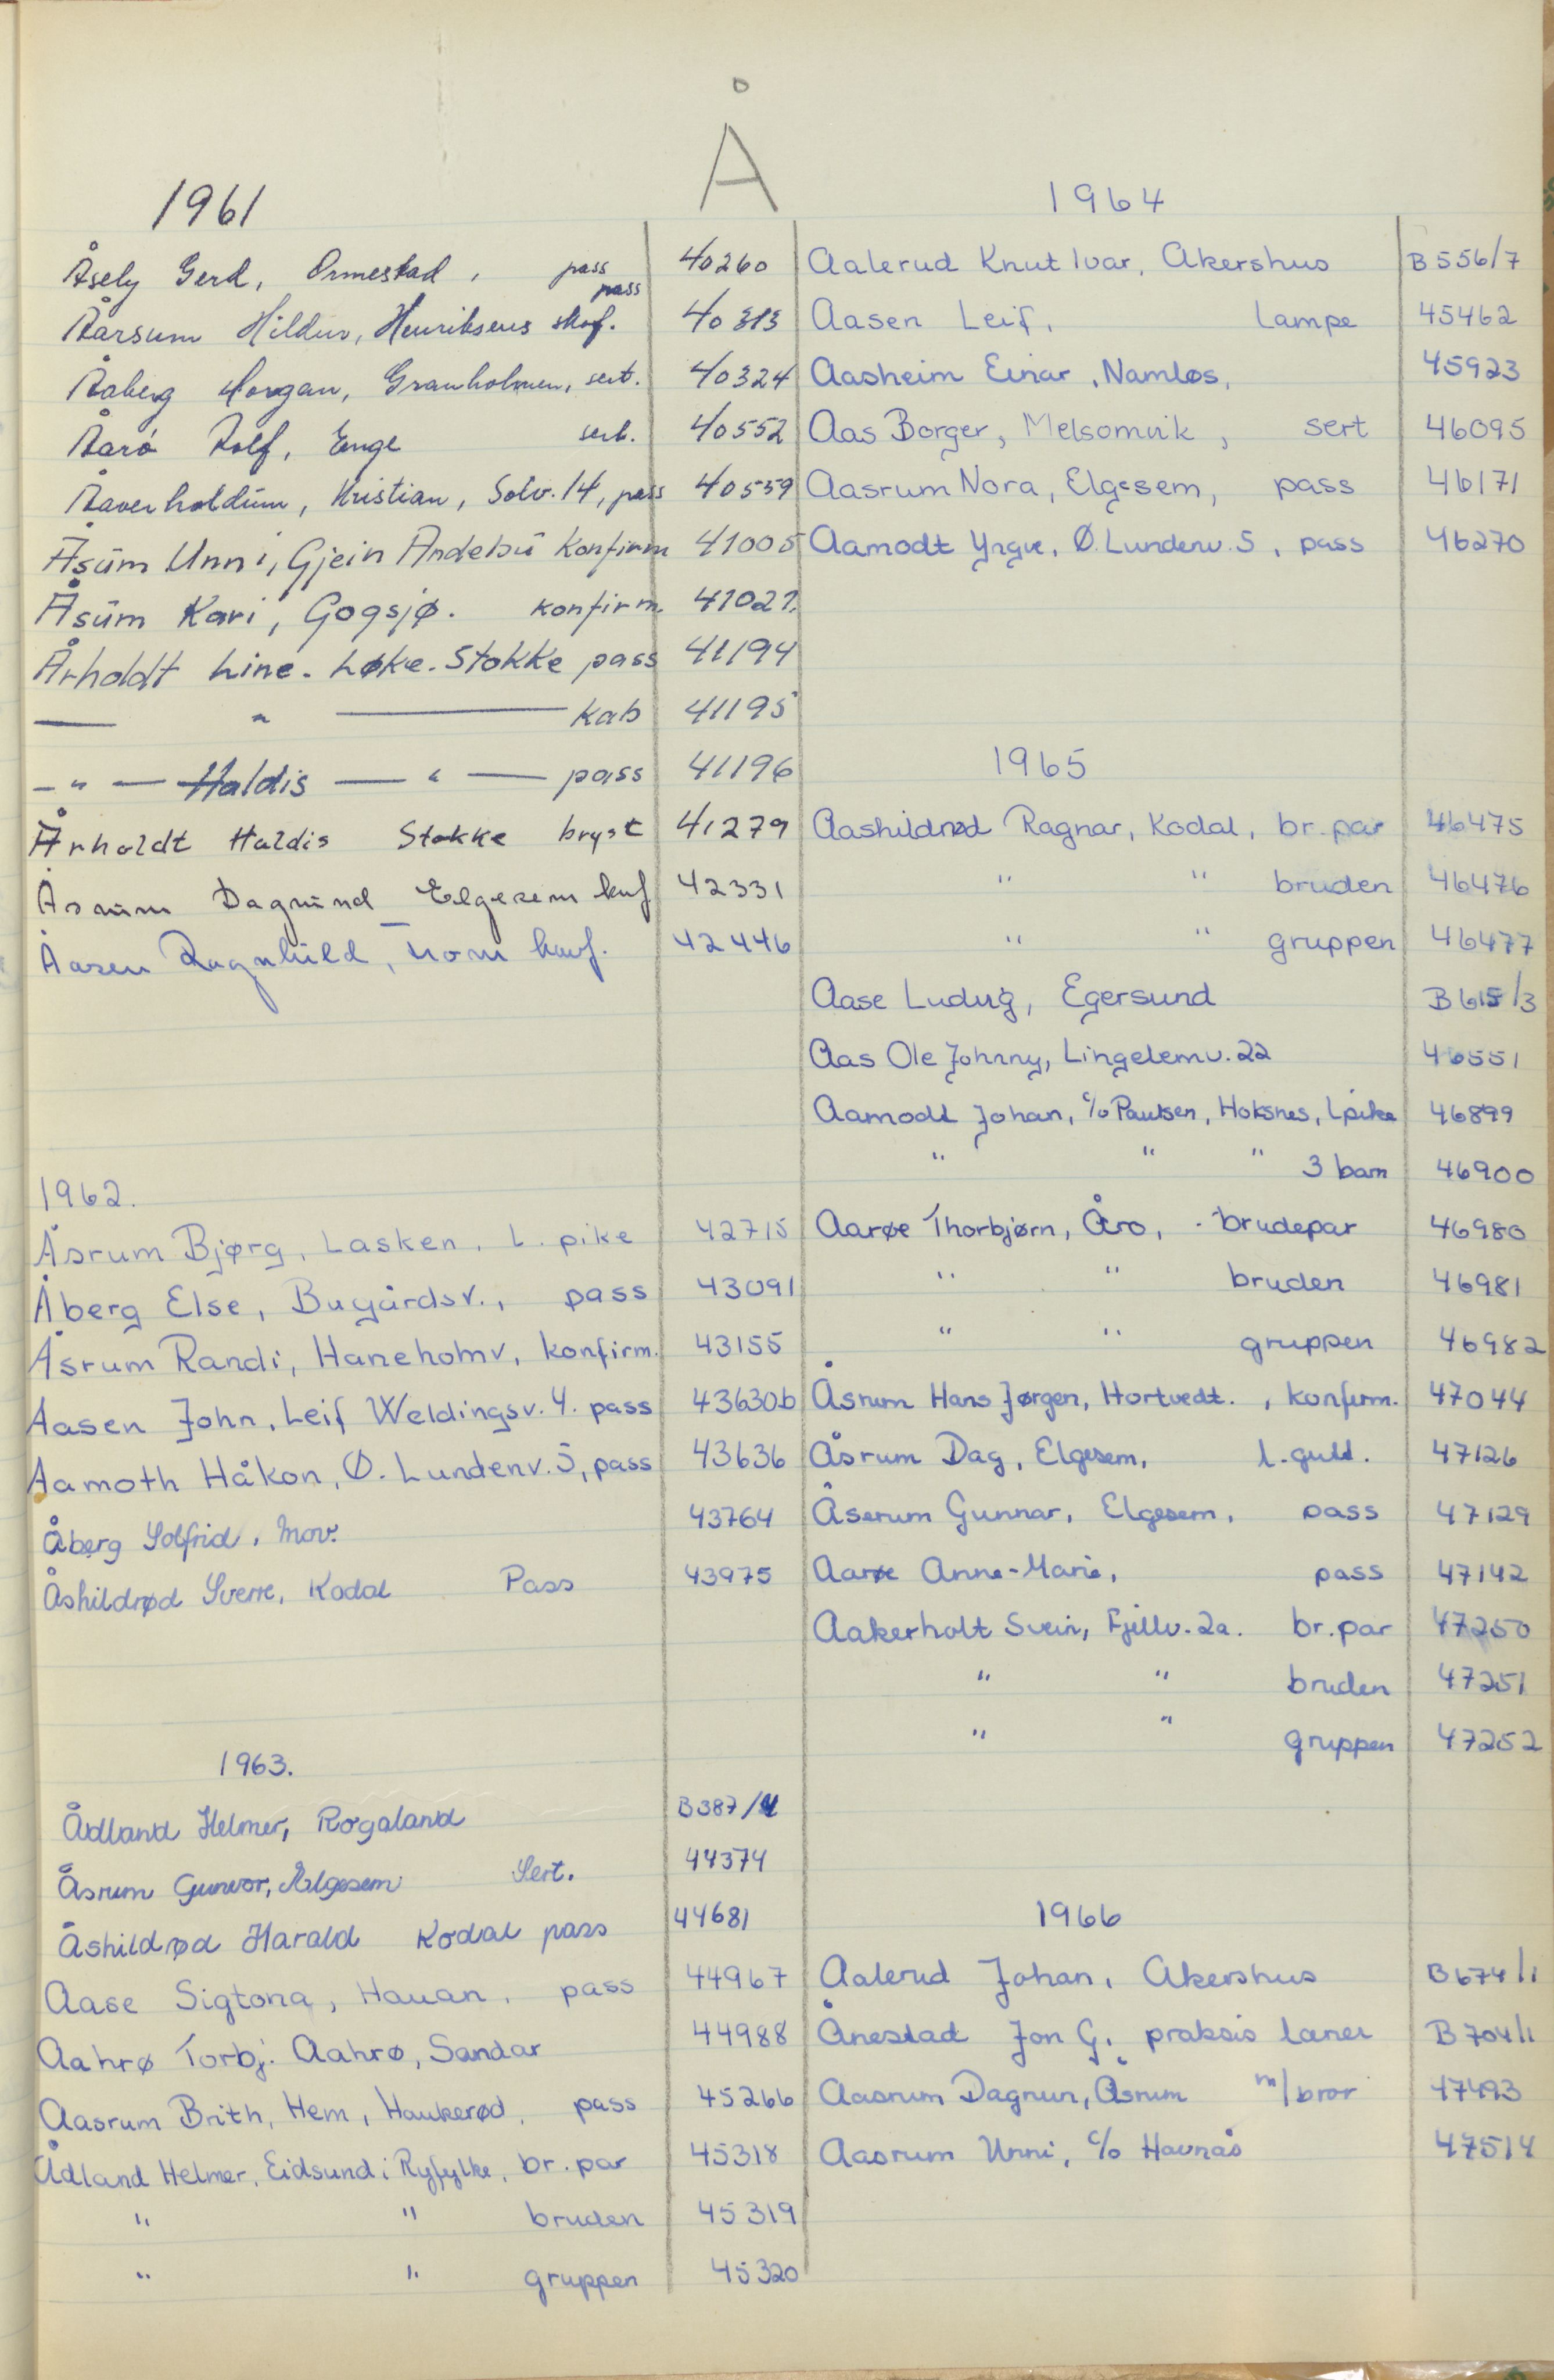 Å
1961
Åsely Gerd, Ormestad, pass 40260
Åarsum Hildur, Henriksens skof. pass 40313
Åaberg Morgan, Granholmen, sert. 40324
Åarö Rolf, Enge sert. 40552
Åaverholdum, Kristian, Solv. 14, pass 40559
Åsüm Unni, Gjein Andebü Konfirm 41005
Åsüm Kari, Gogsjø. konfirm. 41027.
Årholdt Line - Løke - Stokke pass 41194
— " — kab 41195
— " — Haldis — " — pass 41196
Årholdt Haldis Stokke bryst 41279
Åsrum Dagrund Elgesem knf 42331
Åasen Ragnhild, nom konf. 42446
1962.
Åsrum Bjørg, Lasken, L. pike 42715
Åberg Else, Bugårdsv., pass 43091
Åsrum Randi, Haneholmv, konfirm. 43155
Aasen John, Leif Weldingsv. 4. pass 43630b
Aamoth Håkon, Ø. Lundenv. 5, pass 43636
Åberg Solfrid, Mov. 43764
Åshildrød Sverre, Kodal Pass 43975
1963.
Ådland Helmer, Rogaland B387/4
Åsrum Gunvor, Elgesem Sert. 44374
Åshildrød Harald Kodal pass 44681
Aase Sigtona, Hauan, pass 44967
Aahrø Torbj. Aahrø, Sandar 44988
Aasrum Brith, Hem, Haukerød, pass 45266
Ådland Helmer, Eidsund i Ryfylke, br. par 45318
" " bruden 45319
" " gruppen 45320
1964
Aalerud Knut Ivar, Akershus B556/7
Aasen Leif, Lampe 45462
Aasheim Einar, Namløs, 45923
Aas Borger, Melsomvik, sert 46095
Aasrum Nora, Elgesem, pass 46171
Aamodt Yngve, Ø. Lundenv. 5, pass 46270
1965
Aashildrød Ragnar, Kodal, br. par 46475
" " bruden 46476
" " gruppen 46477
Aase Ludvig, Egersund B615/3
Aas Ole Johnny, Lingelemv. 22 46551
Aamodt Johan, c/o Paulsen, Hoksnes, l pike 46899
" " " 3 barn 46900
Aarøe Thorbjørn, Åro, - brudepar 46980
" " bruden 46981
" " gruppen 46982
Åsrum Hans Jørgen, Hortvedt., konfirm. 47044
Åsrum Dag, Elgesem, l. gutt. 47126
Åserum Gunnar, Elgesem, pass 47129
Aarøe Anne-Marie, pass 47142
Aakerholt Svein, Fjellv. 2a. br. par 47250
" " bruden 47251
" " gruppen 47252
1966
Aalerud Johan, Akershus B674/1
Ånestad Jon G. praksis lærer B704/1
Aasrum Dagrun, Åsrum m/bror 47493
Aasrum Unni, c/o Havnås 47514